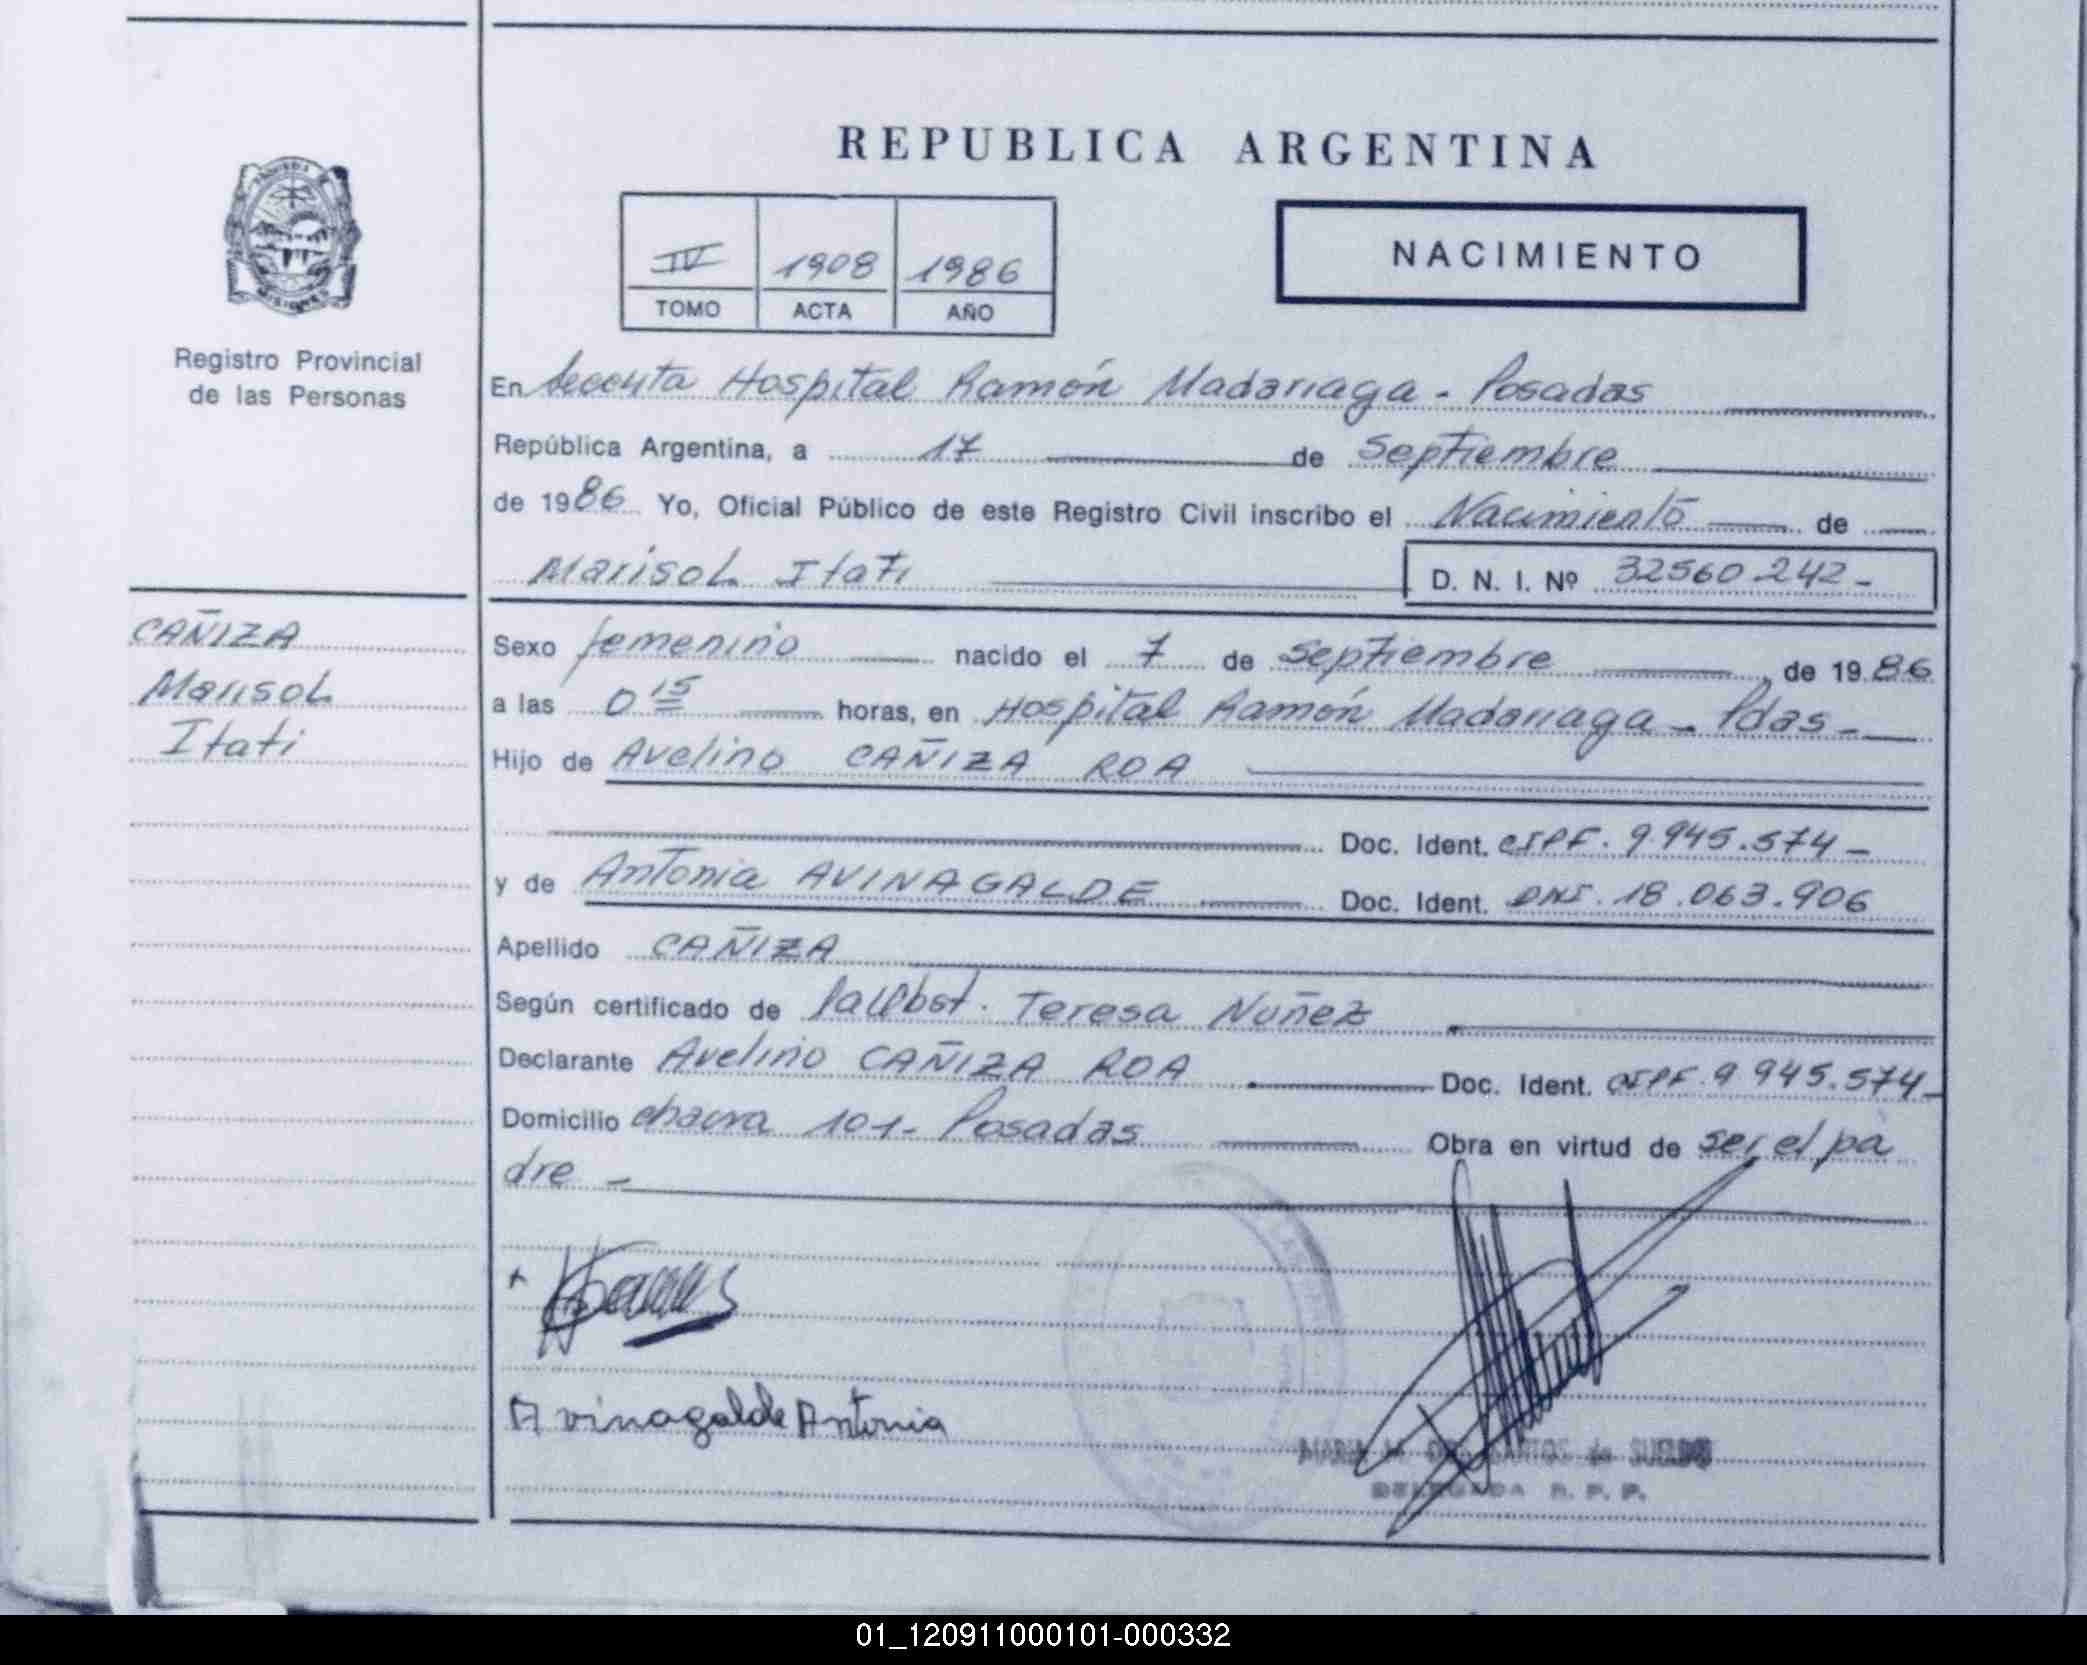 REPUBLICA ARGENTINA
IV 1908 1986
TOMO ACTA AÑO
NACIMIENTO
Registro Provincial
de las Personas
En Hospital Ramón Madariaga - Posadas
República Argentina, a 17 de Septiembre
de 1986 Yo, Oficial Público de este Registro Civil inscribo el Nacimiento de
Marisol Itati D. N. I. Nº 32560.242-
CAÑIZA
Marisol
Itati
Sexo femenino nacido el 7 de Septiembre de 1986
a las 0 15 horas, en Hospital Ramón Madariaga - Pdas -
Hijo de Avelino CAÑIZA ROA
Doc. Ident. CIPF. 9.945.574-
y de Antonia AVINAGALDE Doc. Ident. DNI. 18.063.906
Apellido CAÑIZA
Según certificado de Teresa Nuñez
Declarante Avelino CAÑIZA ROA Doc. Ident. CIPF. 9 945.574-
Domicilio chacra 101- Posadas Obra en virtud de ser el pa
dre -
Avinagalde Antonia
MARIA SANTOS de
DELEGADA R. P. P.
01_120911000101-000332